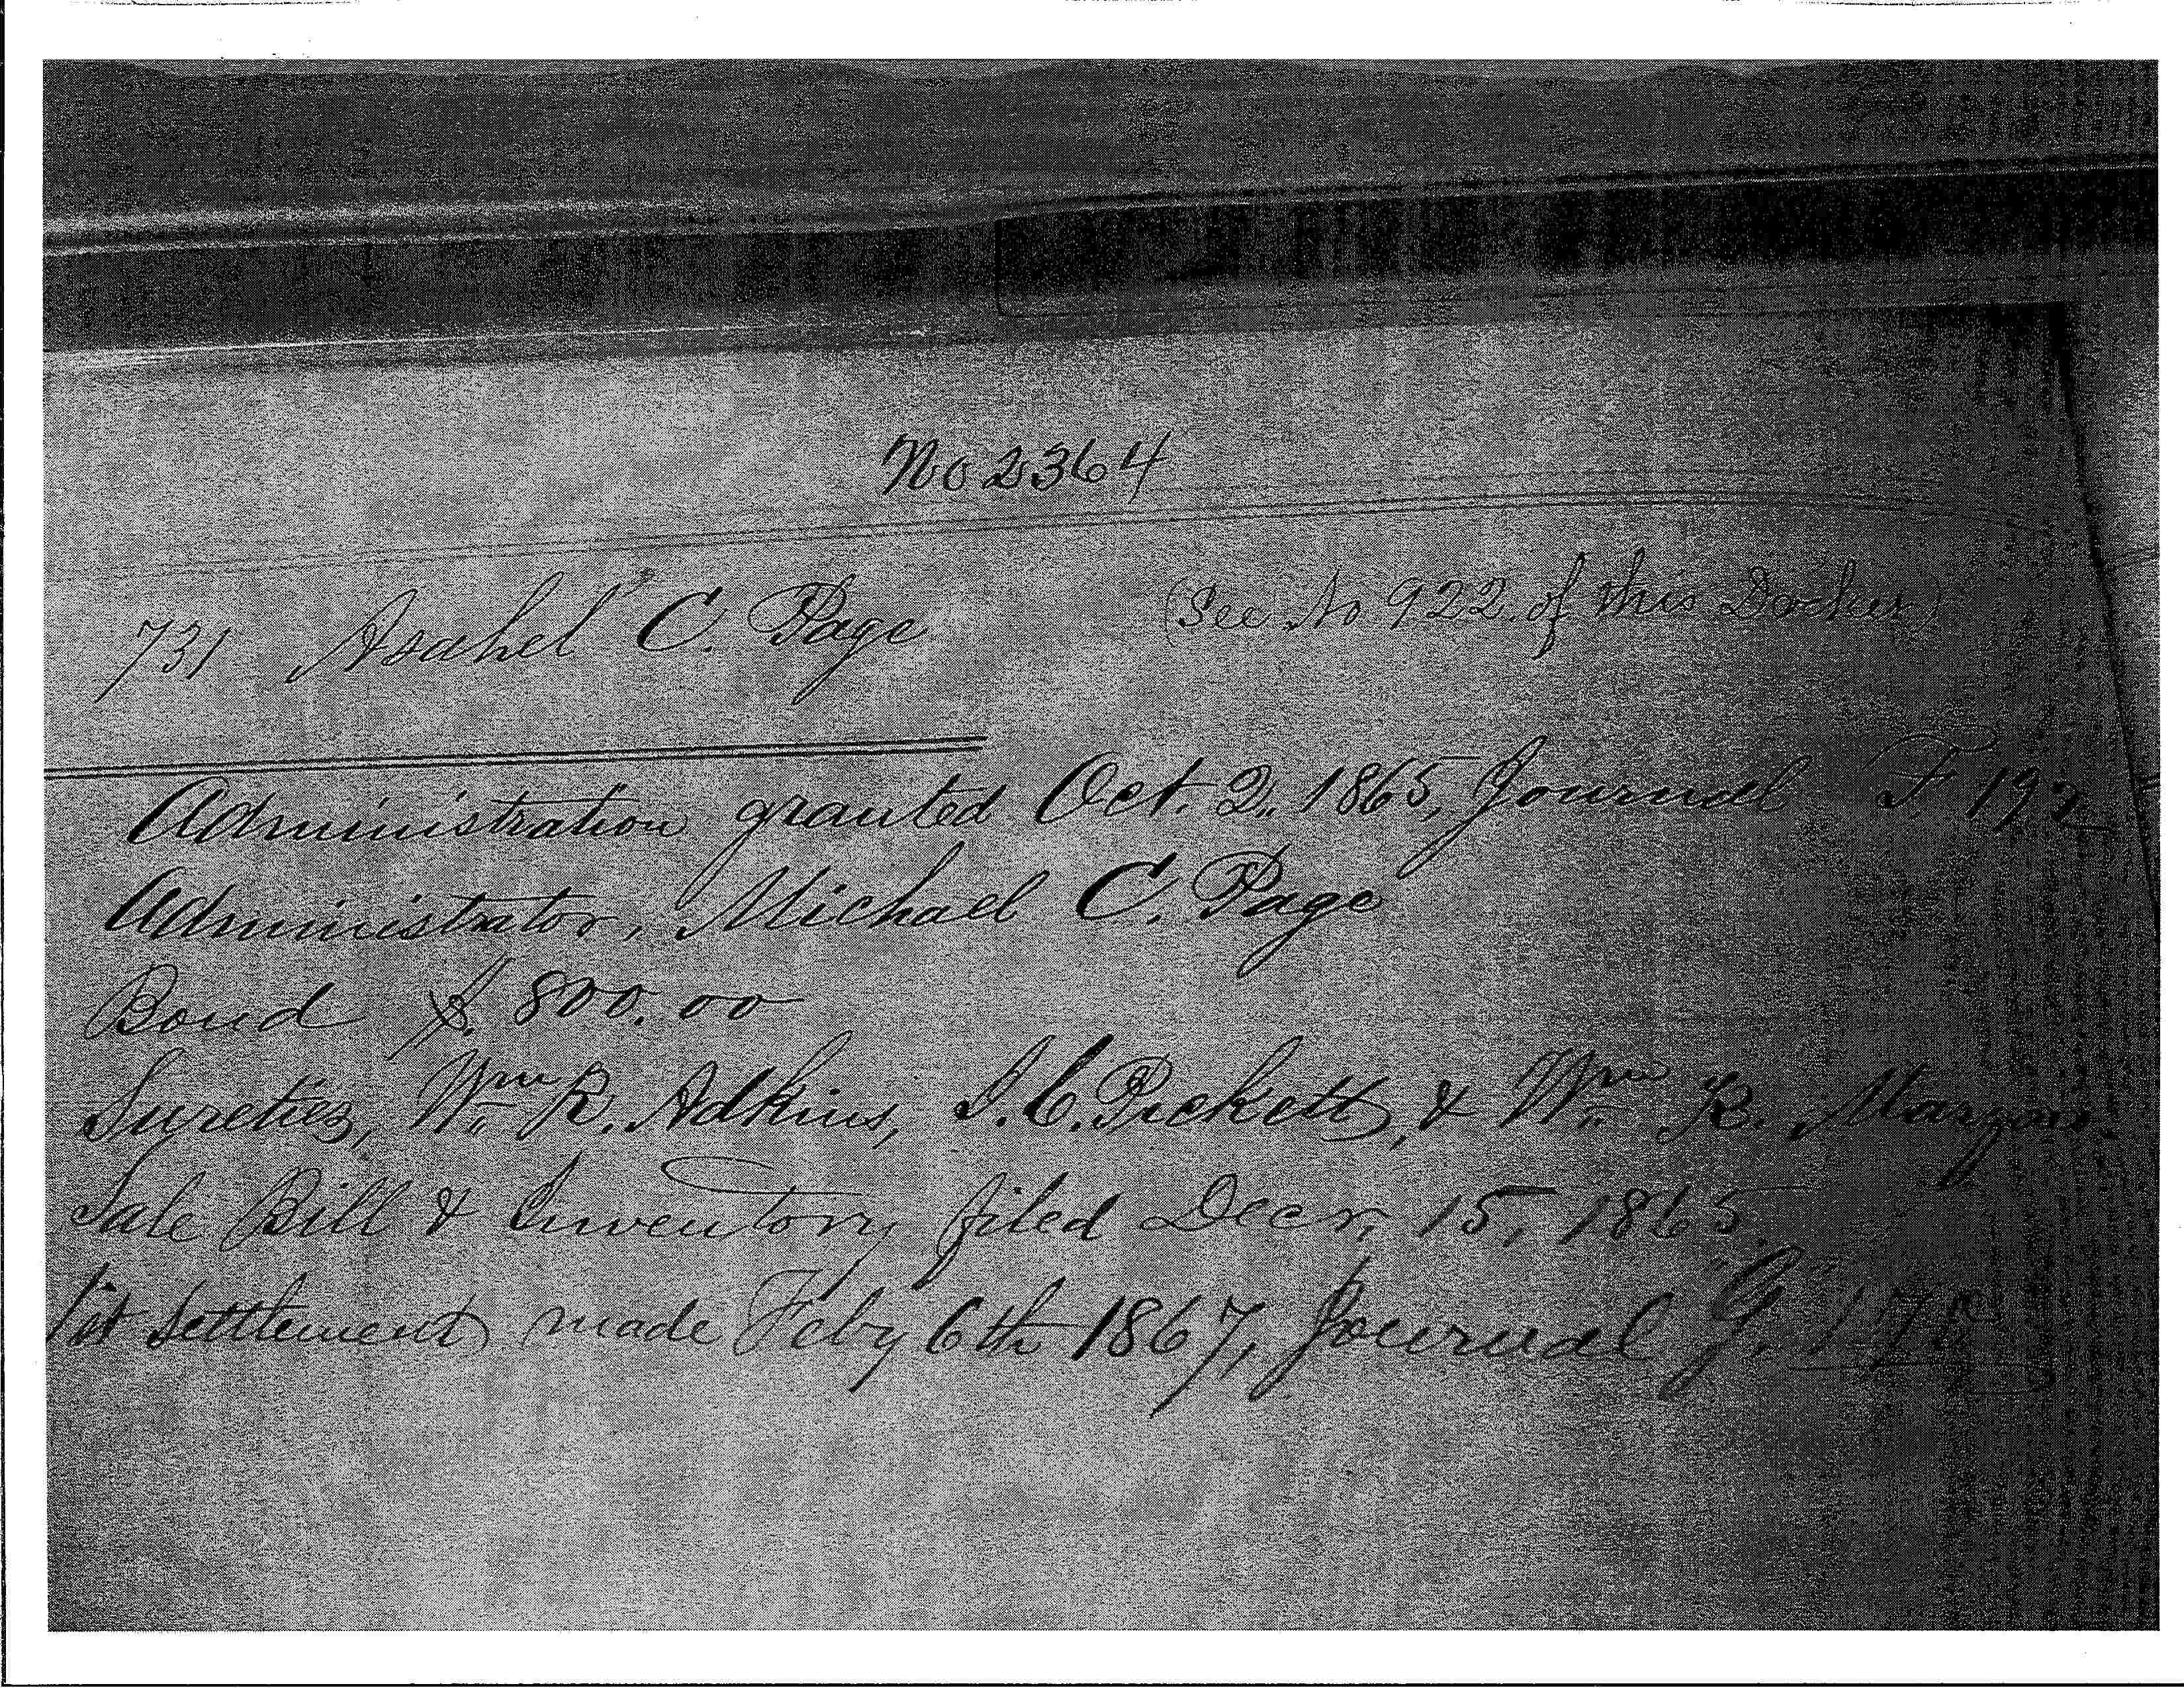 No 2364
731 Asahel C. Page (See No 922 of this Docket)
Administration granted Oct. 2, 1865, Journal F 192
Administrator, Michael C. Page
Bond $. 800.00
Sureties, Wm R. Adkins, I. C. Pickett, & Wm R.
Sale Bill & Inventory filed Decr. 15, 1865
1st Settlement made Feby 6th 1867, Journal "G"